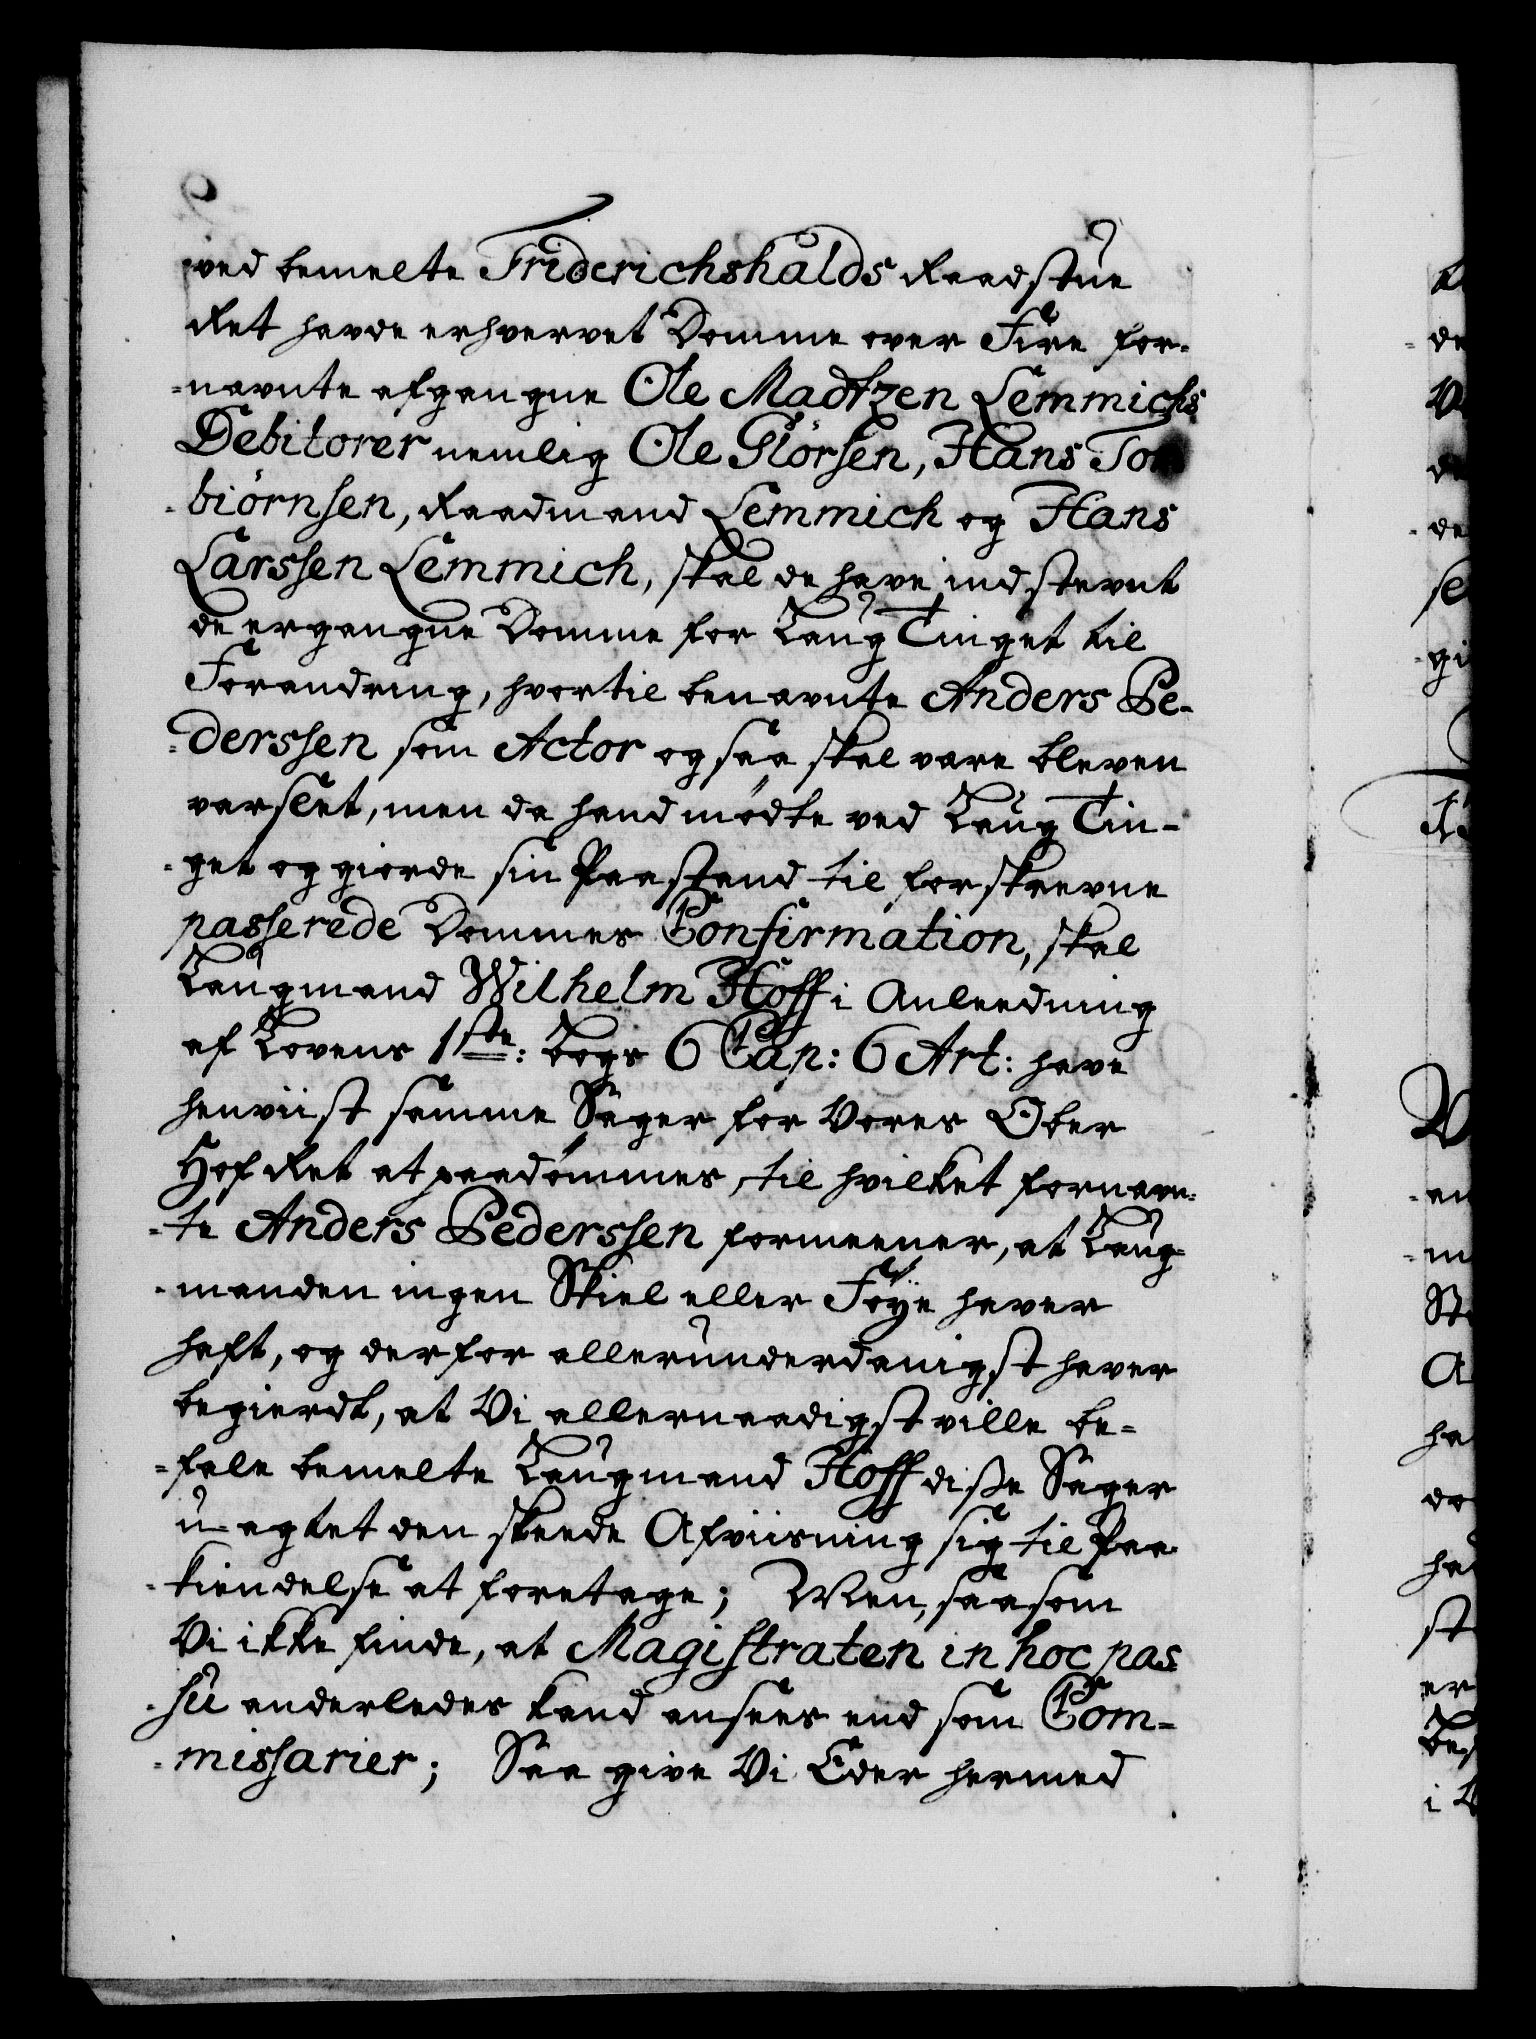 ved bemelte Friderichshalds Raadstue
Ret havde erhvervet Domme over Fire for-
-navnte afgangne Ole Madtzen Lemmichs
Debitorer nemlig Ole Glörsen, Hans Tor
-biörnsen, Raadmand Lemmich og Hans
Larssen Lemmich, skal de have indstevnt
de ergangne Domme for Laug Tinget til
Forandring, hvortil benavnte Anders Pe-
-derssen som Actor og saa skal være bleven
varslet, men da hand mödte ved Laug Tin-
-get og giorde sin Paastand til forskrevne
passerede Dommes Confirmation, skal
Laugmand Wilhelm Hoff i Anleedning
af Lovens 1ste: Bogs 6 Cap: 6 Art: have
henviist samme Sager for Vores Ober
Hof Ret at paadömmes, til hvilket fornavn-
-te Anders Pederssen formeener, at Laug-
-manden ingen Skiel eller Föye haver
haft, og derfor allerunderdanigst haver
begierdt, at Vi allernaadigst ville be-
-fale bemelte Laugmand Hoff disse Sager
u-agtet den skeede Afviisning sig til Paa-
-kiendelse at foretage; Men, saasom
Vi ikke finde, at Magistraten in hoc pas
-su anderledes kand ansees end som Com-
-missarier; Saa give Vi Eder hermed